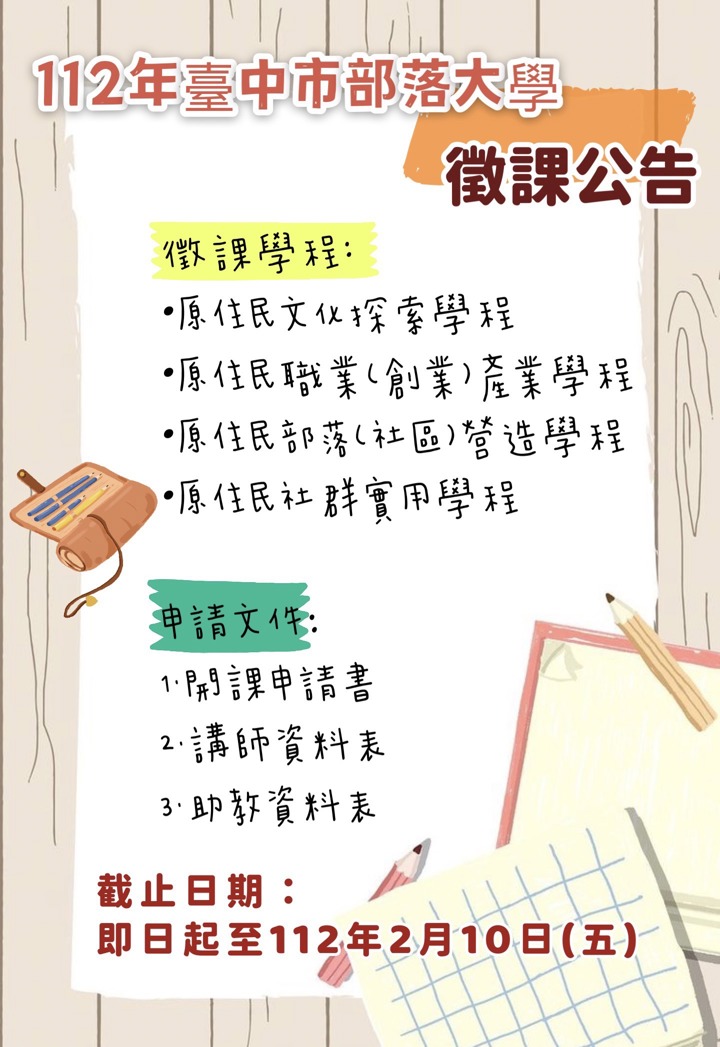 112年臺中市部落大學
徵課公告
徵課學程:
•原住民文化探索學程
•原住民職業(創業)產業學程
•原住民部落(社區)營造學程
•原住民社群實用學程
申請文件:
1.開課申請書
2.講師資料表
3.助教資料表
截止日期：
即日起至112年2月10日(五)